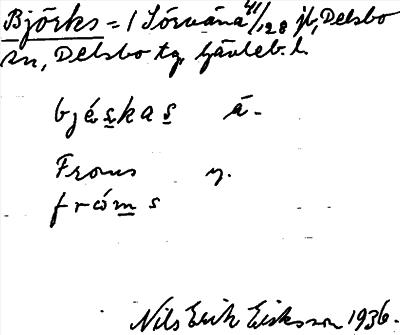 Björks = 1 Sörvåna 41/128 jb, Delsbo
sn, Delsbo tg, Gävleb. l.
bjéskas å.
Froms y.
fróms
Nils Erik Eriksson 1936.